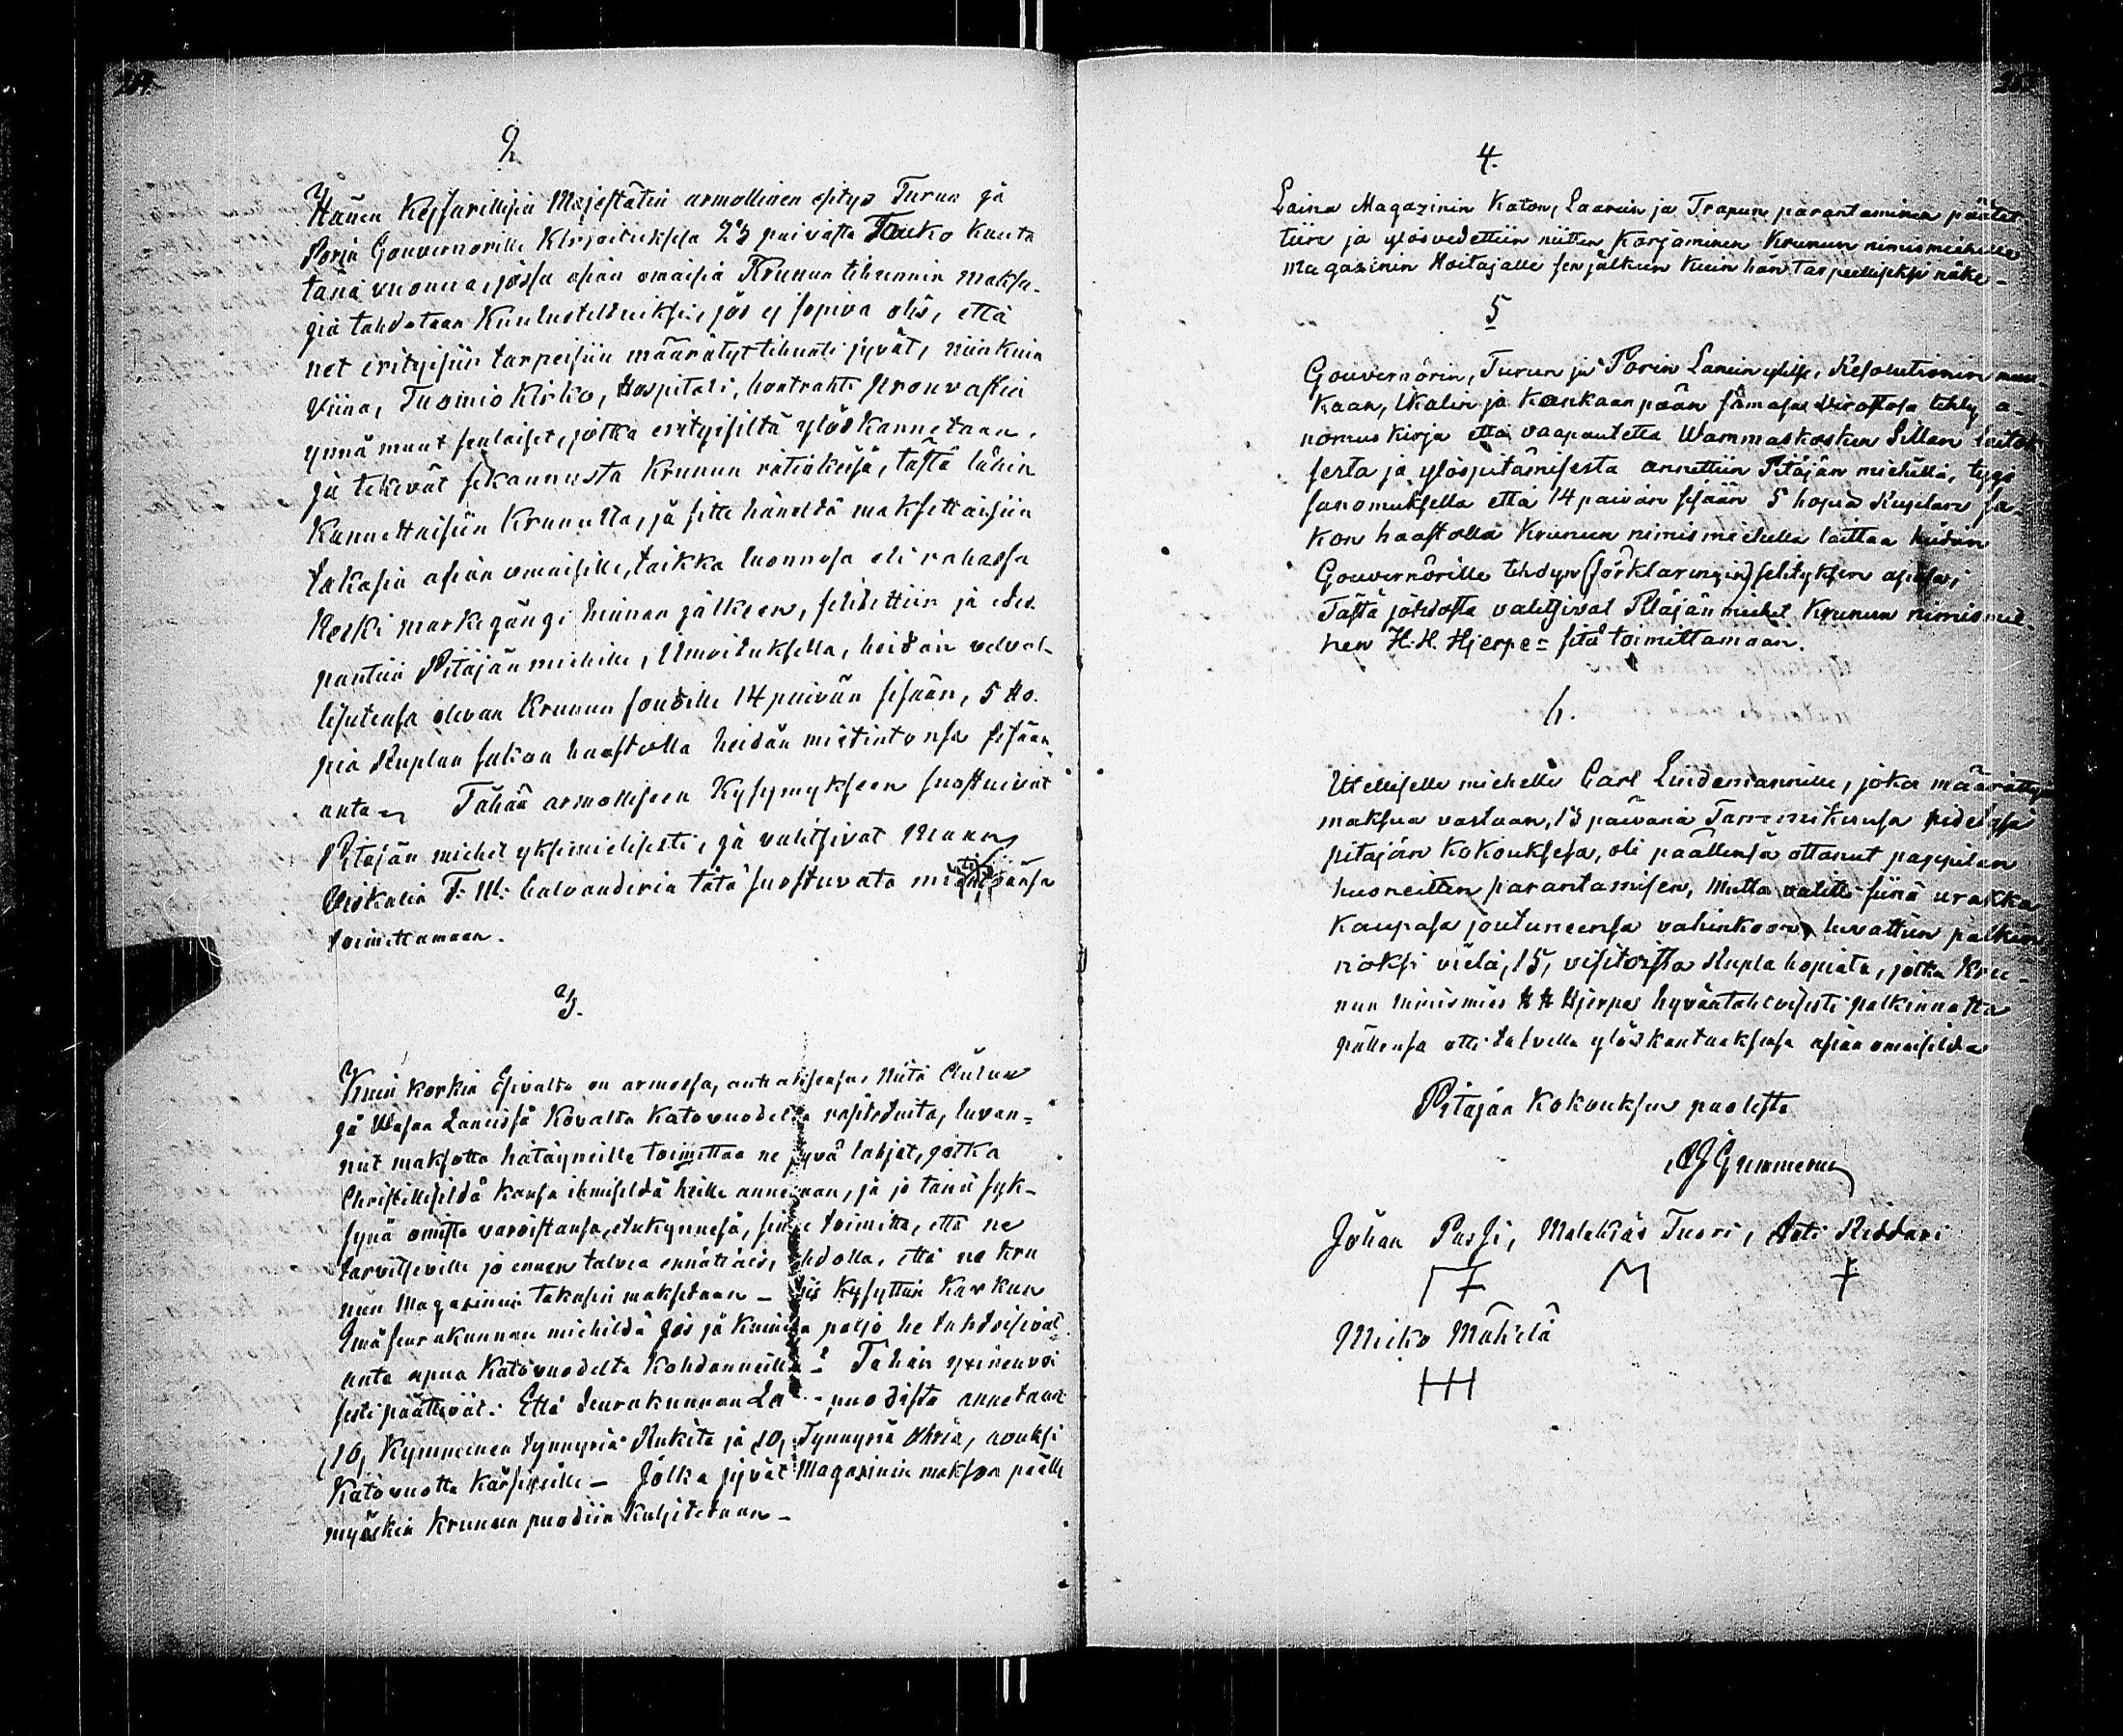 2
Hänen Kejsarillisin Majestätin armollinen esitys Turun ja
Porin Gouvernorille Kirjoituksesa 23 päivästä Touko kuuta
tänä vuonna, jossa asian omaisia Krunun tihunnin maksa-
jia tahdotaan Kuulusteltuiksi, jos ej sopiva olis, että
net erityisiin tarpeisiin määrätyt tihunti jyvät, niinkuin
Viina, Tuomio Kirko, Hospitali, kontrahti prouvastin
ynnä muut senlaiset, jotka erityisiltä ylöskannetaan,
ja tekevät sekannusta Krunun rätinkeisä, tästä lähin
Kannettaisiin Krunulta, ja sitte häneldä maksettaisiin
takasin asian omaisille, taikka luonnosa eli rahassa
Keski markegångi hinnan jälkeen, selitettiin ja edes
pantiin Pitäjän miehille, Ilmoituksella, heidän velval-
lisutensa olevan Krunun foudille 14 päivän sisään, 5 ho-
pia Ruplan sakon haastolla heidän mietintönsä sisään
anta Tähän armolliseen Kysymykseen suostuivat
Pitäjän miehet yksimielisesti, ja valitsivat Maan
Viskalin F: W: Calvanderin tätä suostuvata
toimittamaan.
3.
Kuin korkia Esivalta on armossa, Oulun
ja Wasan Läneissä Kovalta Katovuodelta rasitetuita, luvan-
nut maksotta hätäyneille toimittaa ne jyvä lahjat, jotka
Christillisildä kansa ihmisildä heille annetaan, ja jo tänä syk-
synä omista varoistansa, edukynnesä, sinne toimitta, että ne
tarvitseville jo ennen talvea ennättäis, ehdolla, että ne kru
nun Magasinin takasin maksetaan – niin Kysyttiin Karkun
Emäseurakunnan miehildä jos ja kuinka paljo he tahdoisivat
anta apua Katovuodelta Kohdanneille? Tähän yxineuvoi
sesti päättivät: Että Seurakunnan puodista annetaan
,10, Kymmenen tynnyriä Rukita ja 10, Tynnyriä Ohria, avuksi
Katovuotta Kärsiville – Jotka jyvät Magasinin makson päälle
myöskin Krunun puodiin Kuljetetaan –
4.
Laina Magazinin Katon, Laarein ja Trapun parantaminen päätet
tiin ja ylösvedettiin niitten Korjaminen Krunun nimismiehelle
Magazinin Hoitajalle sen jälkeen kuin hän tarpeelliseksi näke –
5
Gouvernörin, Turun ja Porin Länin ylitse, Resolutionin muu-
kaan, Ikalin ja Kankaan pään Virastosa tehty a-
nomus kirja että vaapautetta Wammaskosken Sillan laitok
sesta ja ylöspitämisesta annettiin Pitäjän miehillä, tygö
sanomuksella että 14 päivän sisään 5 hopia Ruplan sa-
kon haastolla Krunun nimismiehellä laittaa heidän
Gouvernörille tehdyn (förklaringin) selityksen asiasa;
Tästä johdosta valitsivat Pitäjän miehet Krunun nimismie-
hen H. H. Hjerpe – sitä toimittamaan.
6.
Itsellisselle miehelle Carl Lindemannille, joka määrättyä
maksua vastaan, 13 päivänä Tammikuusa pidetyssä
pitäjän Kokouksesa, oli päällensä ottanut pappilan
huoneitten parantamisen, mutta valitti siinä urakka
kaupasa joutuneensa vahinkoon, luvattiin palkin
noksi vielä, 15, visitoista Rupla hopiata, jotka Kru-
nun nimismies H H Hjerpe hyväntahtoisesti palkinnotta
päällensä otti talvella ylöskantaaksensa asian omaisilda
Pitäjän Kokouksen puolesta
Gummerus
Johan Passi, Malakias Tuori, Anti Riddari
M
Miko Mäkelä